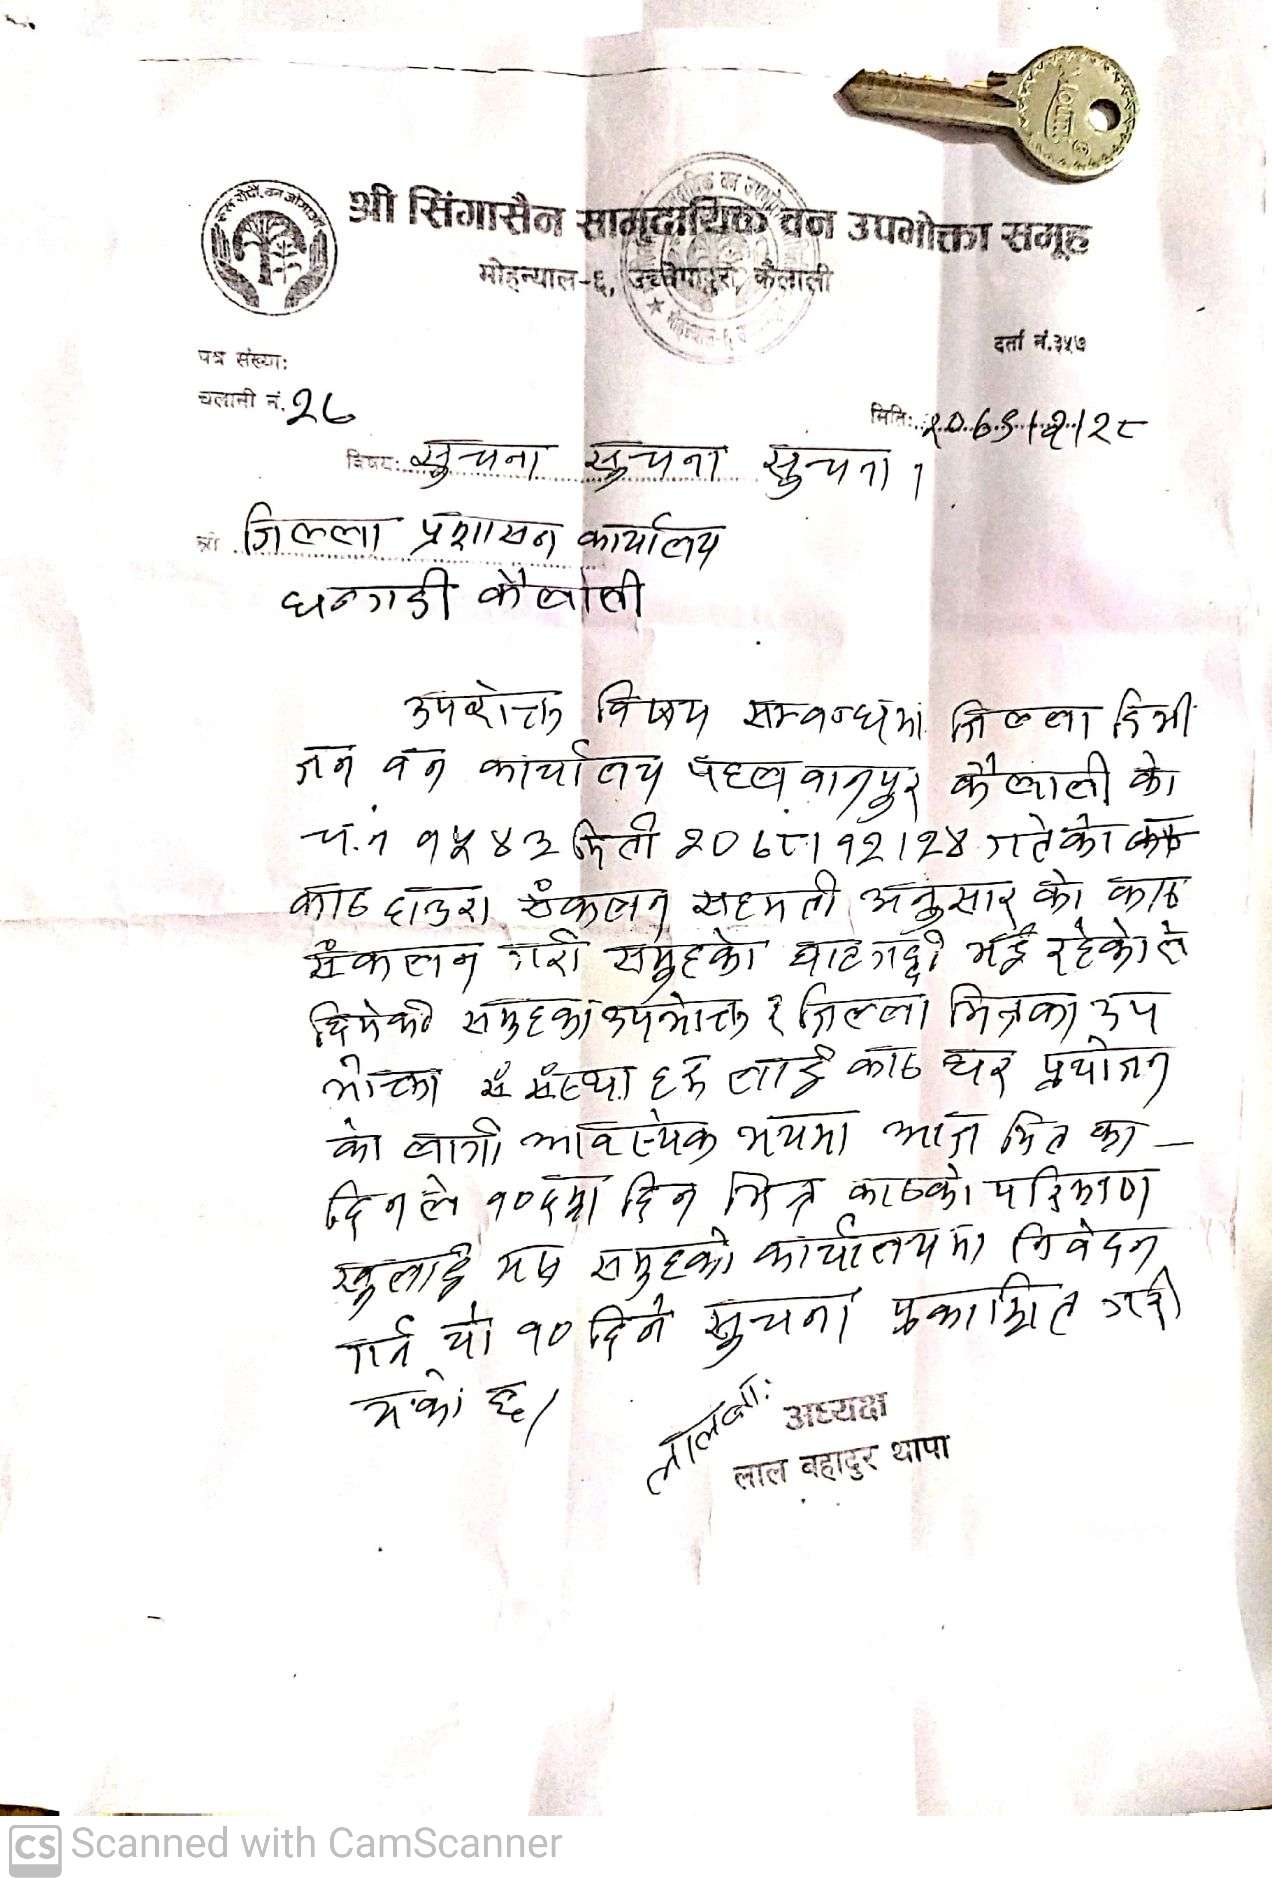 श्री सिंगासैन सामुदायिक वन उपभोक्ता समूह
मोहन्याल-६, कैलाली
दर्ता नं.३५७
पत्र संख्याः
चलानी नं. २८
मितिः
विषयः सुचना सुचना सुचना ।
श्री जिल्ला प्रशासन कार्यालय
धनगडी कैलाली
उपरोक्त विषय सम्वन्धमा जिल्ला डिभी
जन वन कार्यालय पहलवानपुर कैलाली को
च.नं १५४३ मिती २०७८।१२।२४ गतेको
काठ दाउरा संकलन सहमती अनुसार को काठ
संकलन गरी समुहको घाटगद्दी भई रहेकोले
समुहका उपभोक्ता र जिल्ला भित्रका उप
भोक्ता सं संस्था हरु लाई काठ घर प्रयोजन
को लागी आवस्येक भयमा आज मित का
दिनले १० दिन भित्र काठको परिमाण
खुलाई यस समुहको कार्यालयमा निवेदन
गर्न यो १० दिने सुचना प्रकाशित गरी
एको छ।
अध्यक्ष
लाल बहादुर थापा
CS Scanned with CamScanner